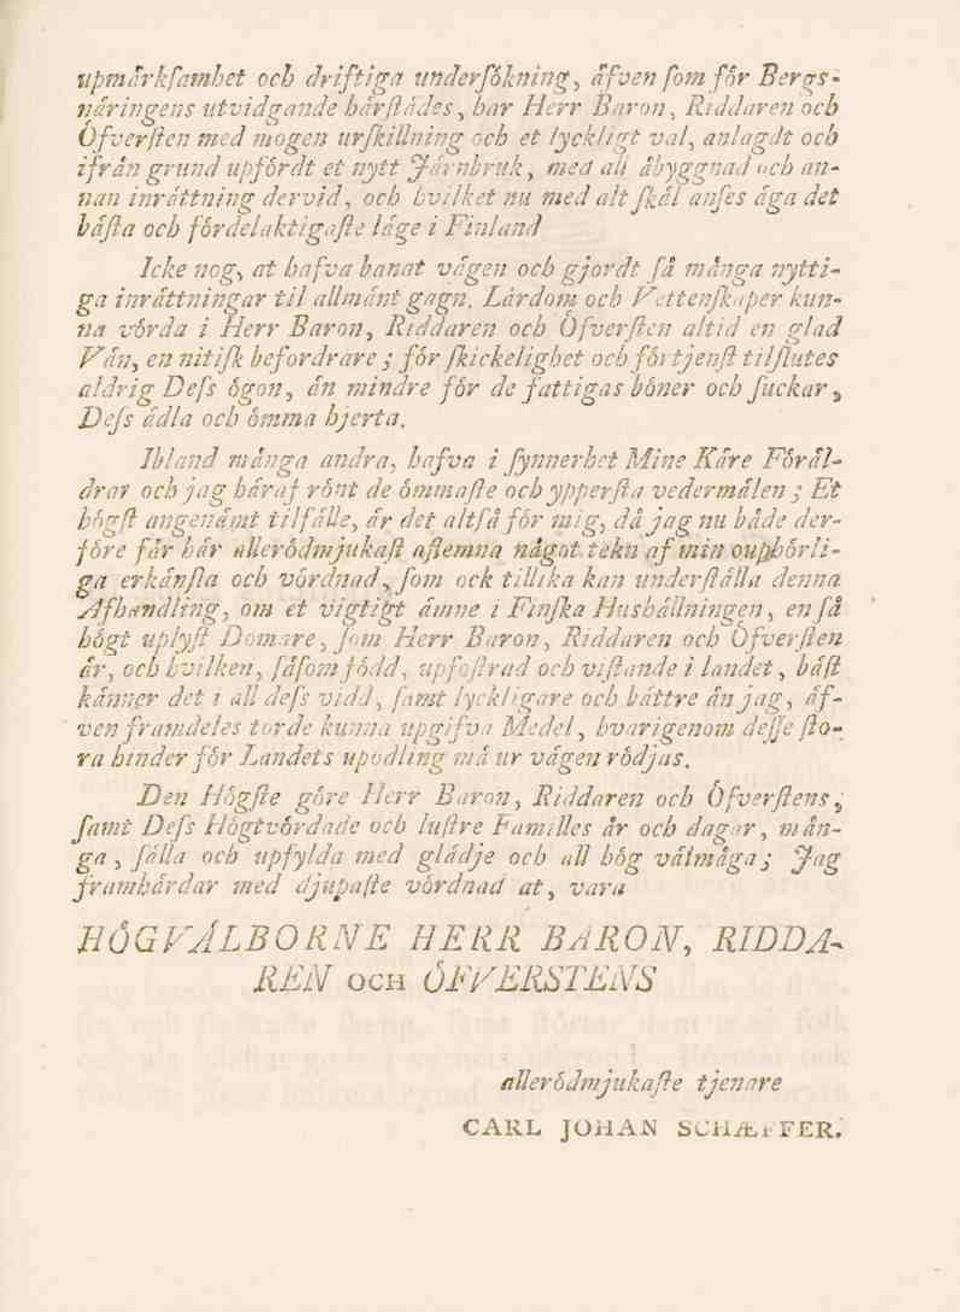 upmärkſamhet och driftiga underſökning, äfven ſom för Bergs-
näringens utvidgande härſtädes, har Herr Baron, Riddaren och
Öfverſten med mogen urſkillning och et lyckligt val, anlagdt och
ifrån grund upfördt et nytt Järnbruk, med all åbyggnad och an-
nan inrättning dervid, och hvilket nu med alt ſkäl anſes äga det
bäſta och fördelaktigaſte läge i Finland
Icke nog, at hafva banat vägen och gjordt ſå många nytti-
ga inrättningar til allmänt gagn. Lärdom och Vettenſkaper kun-
na vörda i Herr Baron, Riddaren och Öfverſten altid en glad
Vän, en nitiſk befordrare; för ſkickelighet och förtjenſt tilſlutes
aldrig Deſs ögon, än mindre för de fattigas böner och ſuckar,
Deſs ädla och ömma hjerta.
Ibland många andra, hafva i ſynnerhet Mine Käre Föräl-
drar och jag häraf rönt de ömmaſte och ypperſta vedermälen; Et
högſt angenämt tilfälle, är det altſå för mig, då jag nu både der-
före får här allerödmjukaſt aflemna något tekn af min ouphörli-
ga erkänſla och vördnad, ſom ock tillika kan underſtälla denna
Afhandling, om et vigtigt ämne i Finſka Hushållningen, en ſå
högt uplyſt Domare, ſom Herr Baron, Riddaren och Öfverſten
är, och hvilken, ſåſom född, upfoſtrad och viſtande i landet, bäſt
känner det i all deſs vidd, ſamt lyckligare och bättre än jag, äf-
ven framdeles torde kunna upgifva Medel, hvarigenom deſſe ſto-
ra hinder för Landets upodling må ur vägen rödjas.
Den Högſte göre Herr Baron, Riddaren och Öfverſtens,
ſamt Deſs Högtvördade och luſtre Familles år och dagar, mån-
ga, ſälla och upfylda med glädje och all hög välmåga; Jag
framhärdar med djupaſte vördnad at, vara
HÖGVÄLBORNE HERR BARON, RIDDA-
REN OCH ÖFVERSTENS
allerödmjukaſte tjenare
CARL JOHAN SCHÆFFER.